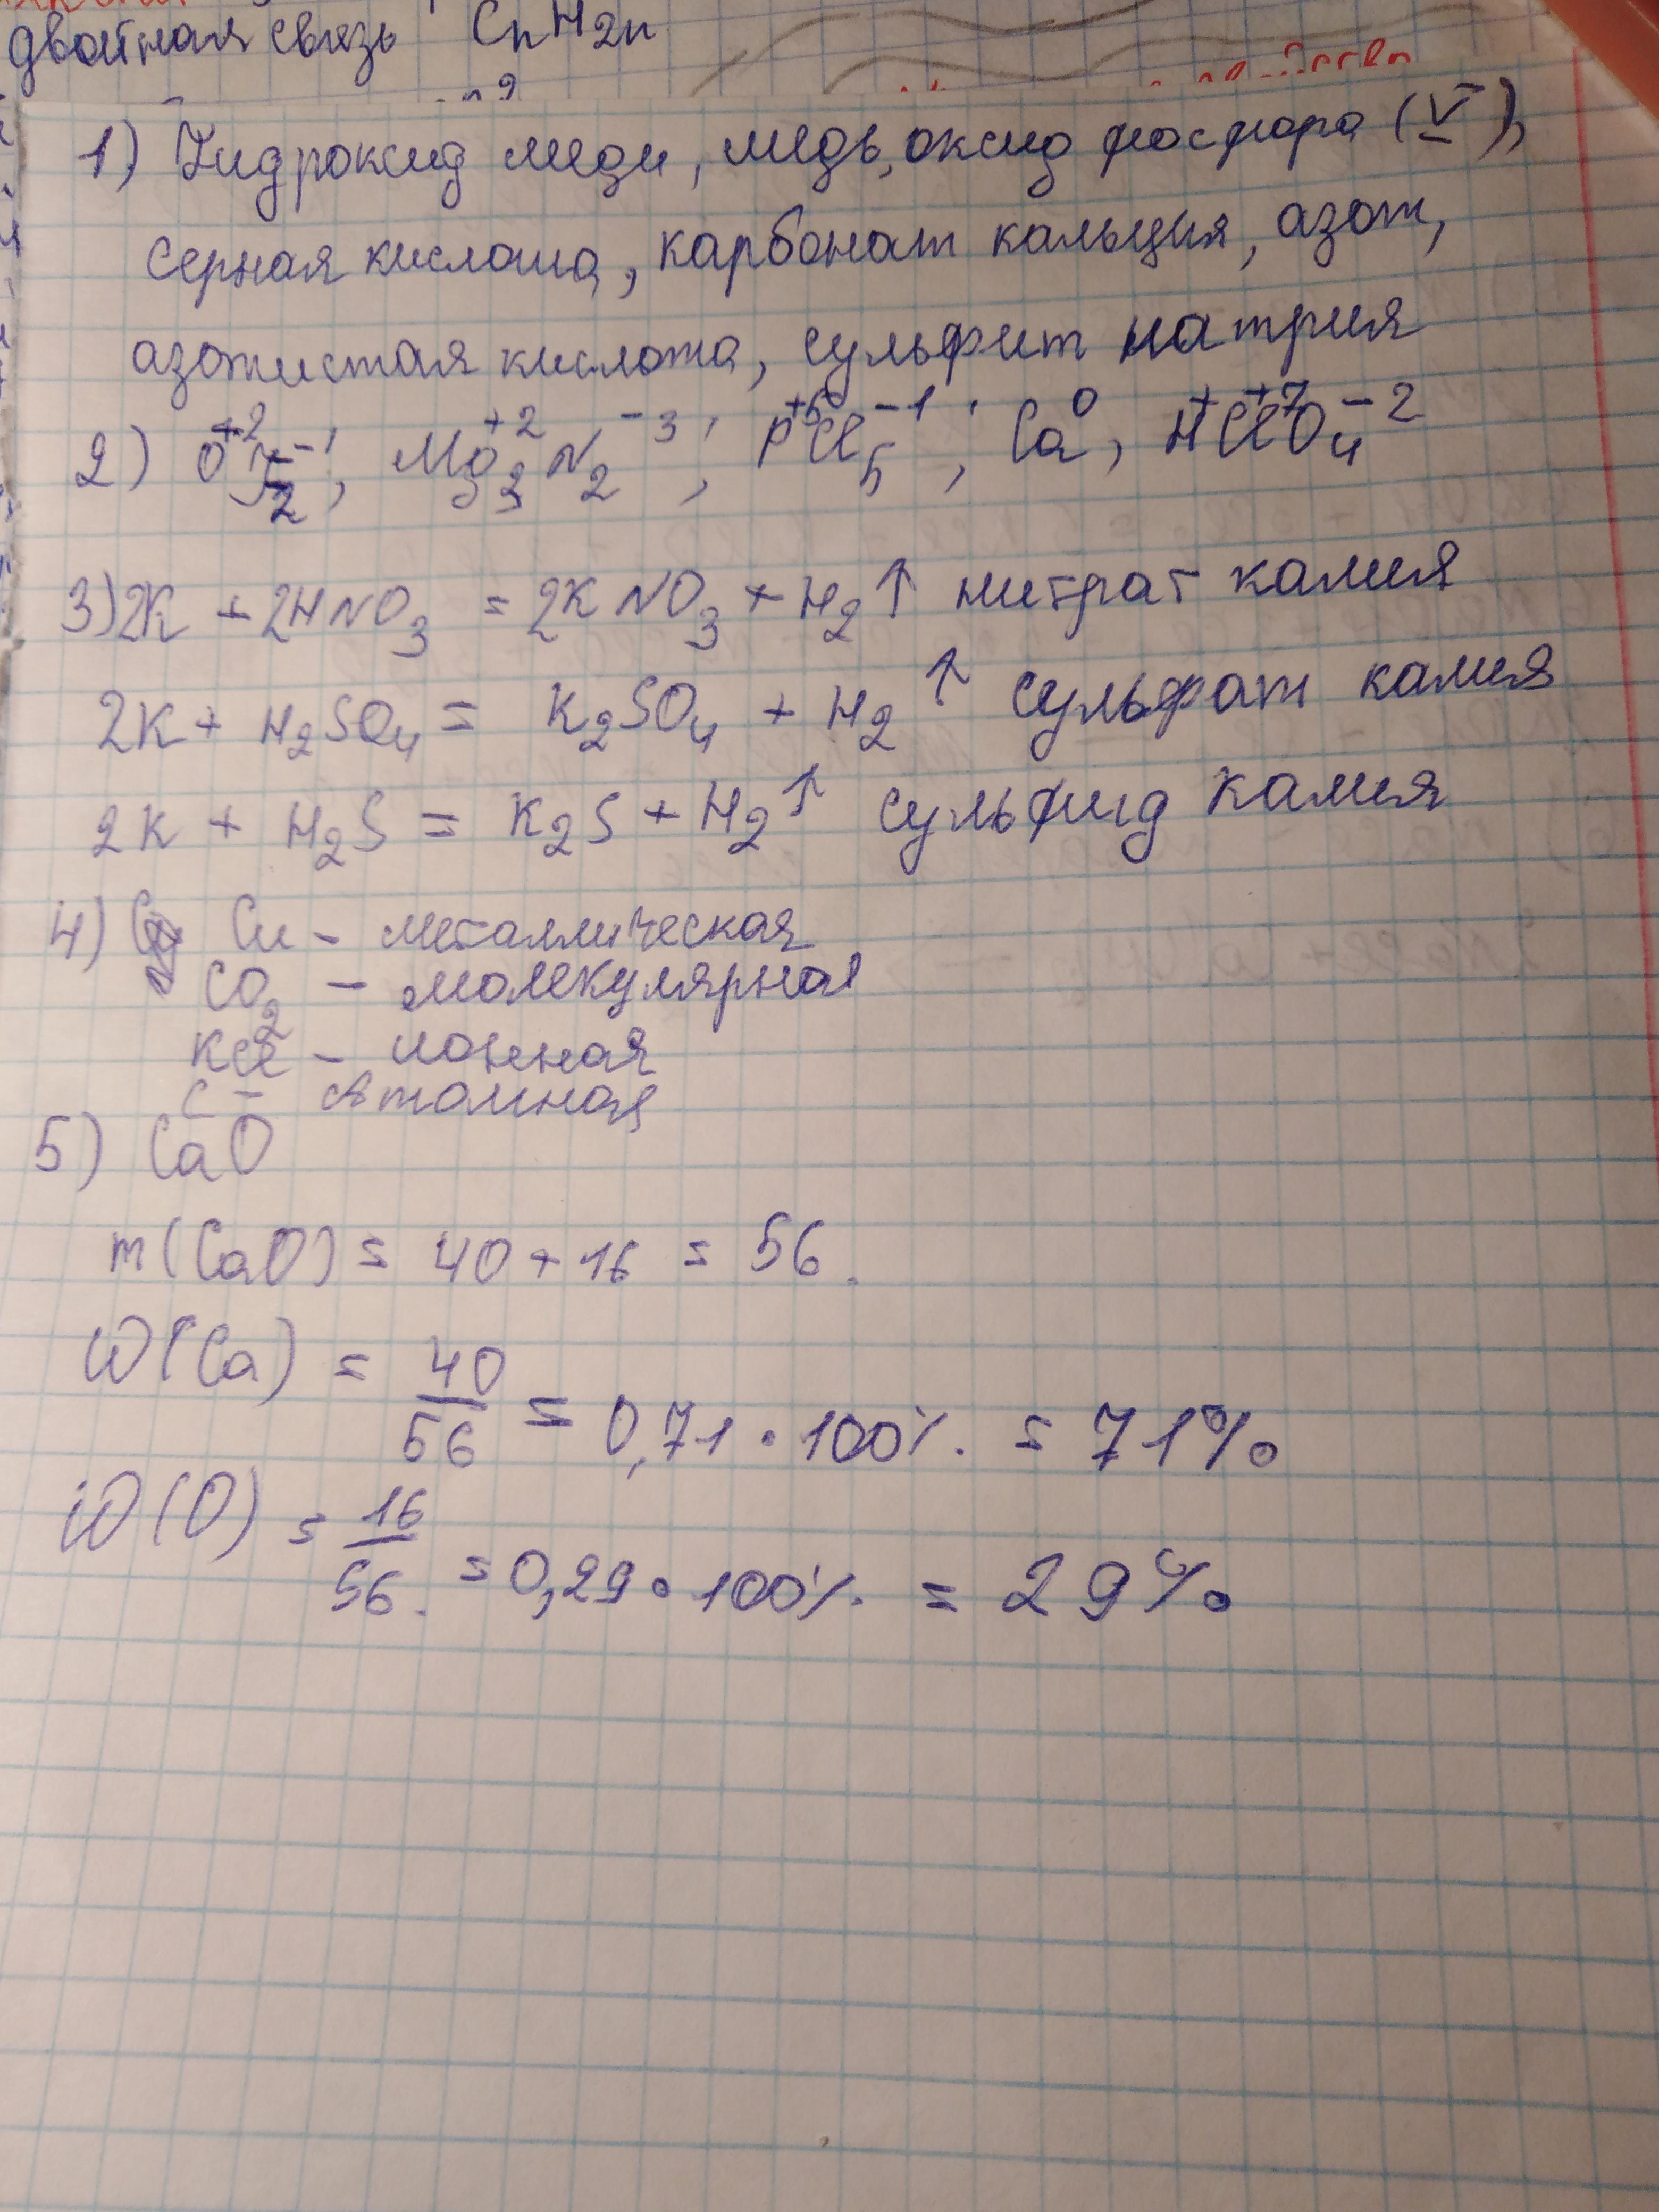 двойная связь CnH2n
1) Гидроксид меди, медь, оксид фосфора (V),
серная кислота, карбонат кальция, азот,
азотистая кислота, сульфит натрия
2) O⁺²F₂⁻¹, Mg₃⁺²N₂⁻³, P⁺⁵Cl₅⁻¹, Ca⁰, H⁺Cl⁺⁷O₄⁻²
3) 2K + 2HNO₃ = 2KNO₃ + H₂↑ нитрат калия
2K + H₂SO₄ = K₂SO₄ + H₂↑ сульфат калия
2K + H₂S = K₂S + H₂↑ сульфид калия
4) Cu - металлическая
CO₂ - молекулярная
KCl - ионная
C - Атомная
5) CaO
m(CaO) = 40 + 16 = 56.
W(Ca) = 40/56 = 0,71 · 100% = 71%
W(O) = 16/56 = 0,29 · 100% = 29%